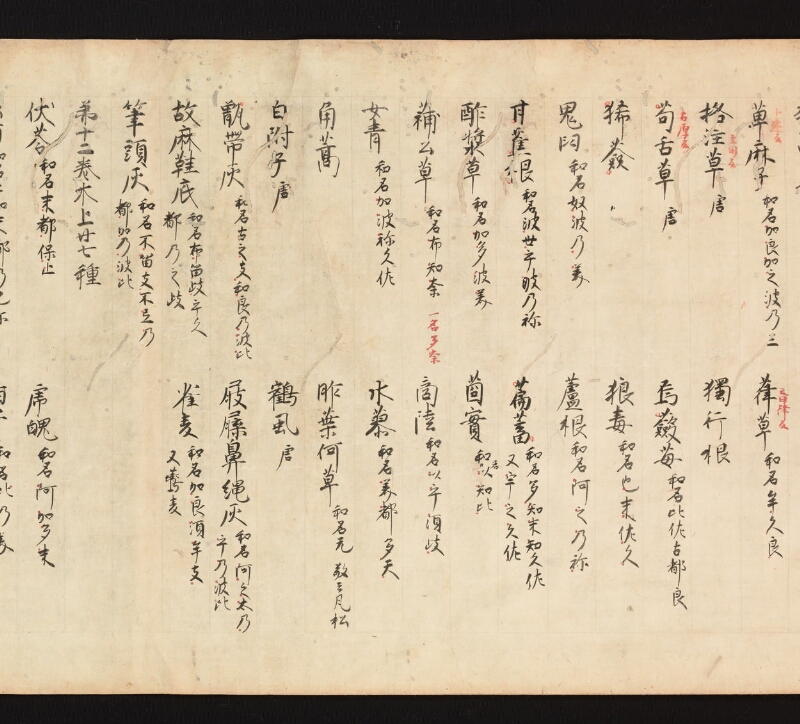 萆麻子 和名加良加之波乃三
葎草 和名牟久良
格注草 唐
獨行根
苟舌草 唐
烏蘞苺 和名比佐古都良
狶薟
狼毒 和名也末佐久
鬼臼 和名奴波乃美
蘆根 和名阿之乃祢
甘蕉根 和名波世乎波乃祢
萹蓄 和名多知末知久佐
又宇之久佐
酢漿草 和名加多波美
茴實 和名以知比
蒲公草 和名布知奈 一名多奈
商陸 和名以乎須岐
女青 和名加波祢久佐
水慕 和名美都多天
角蒿
昨葉何草 和名無
白附子 唐
鶴虱 唐
甑帶灰 和名古之支和良乃波比
屐屧鼻繩灰 和名阿之太乃
乎乃波比
故麻鞋底 和名布留岐乎久
都乃之岐
雀麦 和名加良須牟支
又
筆頭灰 和名不留支不三乃
都加乃波比
第十二卷木上廿七種
伏苓 和名末都保止
虎魄 和名阿加多末